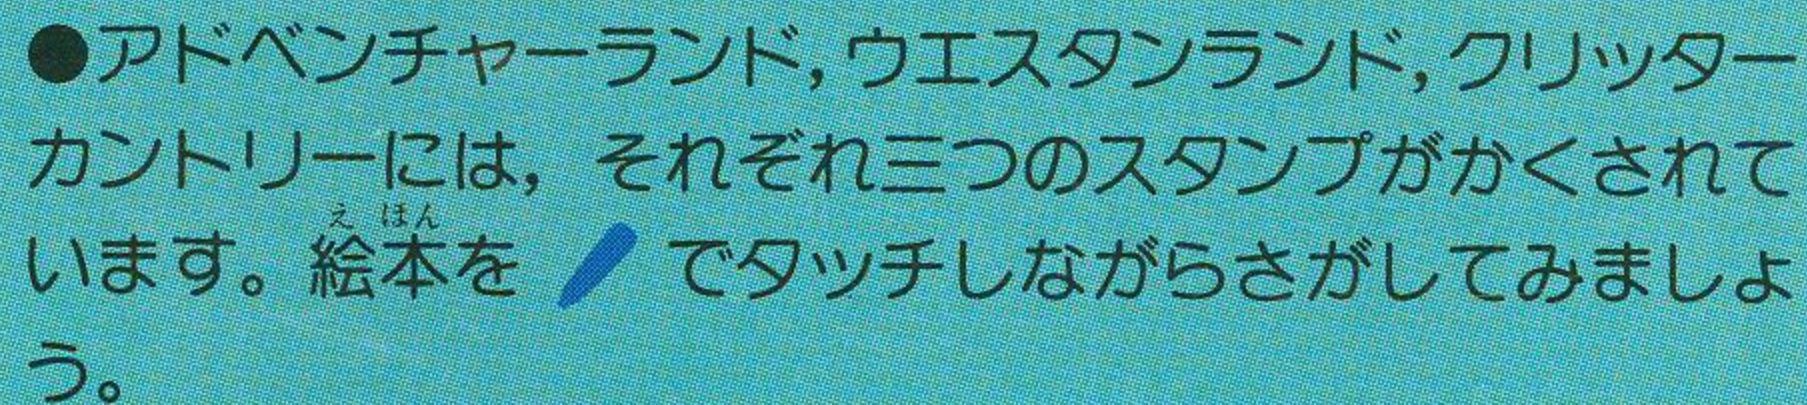 ●アドベンチャーランド，ウエスタンランド，クリッター
カントリーには，それぞれ三つのスタンプがかくされて
います。絵本を でタッチしながらさがしてみましょ
う。
えほん